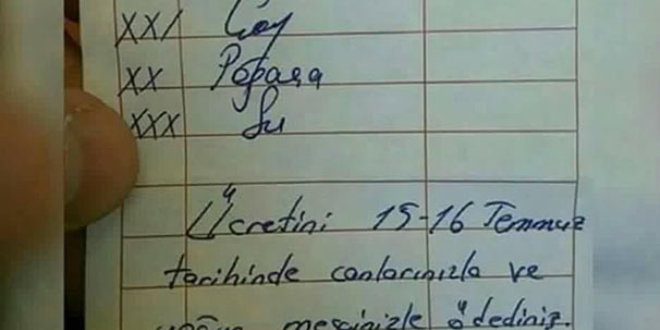 XX/ Çay
XX Poğaça
XXX Su
Ücretini 15-16 Temmuz
tarihinde canlarınızla ve
mesainizle ödediniz.